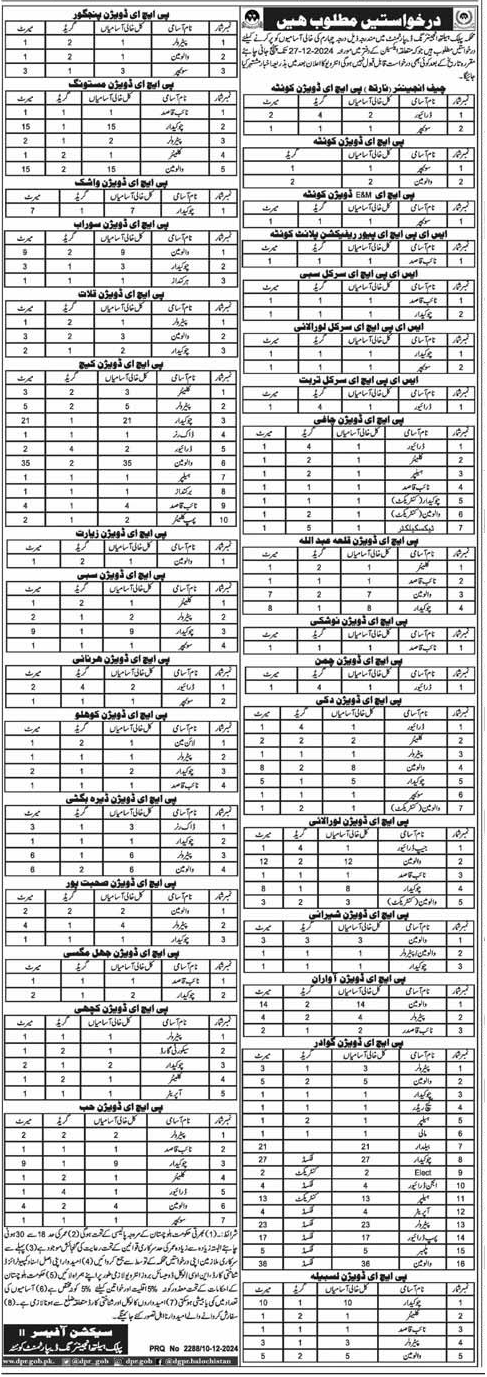 درخواستیں مطلوب ھیں
محکمہ پبلک ہیلتھ انجینئرنگ ڈیپارٹمنٹ میں مندرجہ ذیل درجہ چہارم کی خالی آسامیوں کو پُر کرنے کیلئے
درخواستیں مطلوب ہیں جو کہ متعلقہ ایکسین کے دفتر میں مورخہ 27-12-2024 تک پہنچ جانی چاہئے
مقررہ تاریخ کے بعد کوئی بھی درخواست قابل قبول نہیں ہوگی انٹرویو کا اعلان بعد میں بذریعہ اخبار مشتہر کیا
جائیگا۔
چیف انجینئر (نارتھ) پی ایچ ای ڈویژن کوئٹہ
نمبر شمار نام آسامی کل خالی آسامیاں گریڈ میرٹ
1 ڈرائیور 2 4 2
2 سویپر 1 1 1
پی ایچ ای ڈویژن کوئٹہ
نمبر شمار نام آسامی کل خالی آسامیاں گریڈ میرٹ
1 سویپر 1 1 1
2 والومین 2 2 2
پی ایچ ای ڈویژن E&M کوئٹہ
نمبر شمار نام آسامی کل خالی آسامیاں گریڈ میرٹ
1 سویپر 1 1 1
ایس ای پی ایچ ای پیور ریفیکشن پلانٹ کوئٹہ
نمبر شمار نام آسامی کل خالی آسامیاں گریڈ میرٹ
1 نائب قاصد 1 1 1
ایس ای پی ایچ ای سرکل سبی
نمبر شمار نام آسامی کل خالی آسامیاں گریڈ میرٹ
1 نائب قاصد 1 1 1
ایس ای پی ایچ ای سرکل لورالائی
نمبر شمار نام آسامی کل خالی آسامیاں گریڈ میرٹ
1 چوکیدار 1 1 1
2 نائب قاصد 1 1 1
ایس ای پی ایچ ای سرکل تربت
نمبر شمار نام آسامی کل خالی آسامیاں گریڈ میرٹ
1 ڈرائیور 1 4 1
پی ایچ ای ڈویژن چاغی
نمبر شمار نام آسامی کل خالی آسامیاں گریڈ میرٹ
1 ڈرائیور 1 4 1
2 کلینر 1 2 1
3 ہیلپر 1 2 1
4 نائب قاصد 1 1 1
5 چوکیدار (کنٹریکٹ) 1 1 1
6 والومین (کنٹریکٹ) 1 2 1
7 ٹیکس کلیکٹر 1 5 1
پی ایچ ای ڈویژن قلعہ عبداللہ
نمبر شمار نام آسامی کل خالی آسامیاں گریڈ میرٹ
1 کلینر 1 2 1
2 نائب قاصد 1 1 1
3 والومین 7 2 7
4 چوکیدار 8 1 8
پی ایچ ای ڈویژن نوشکی
نمبر شمار نام آسامی کل خالی آسامیاں گریڈ میرٹ
1 سویپر 1 1 1
پی ایچ ای ڈویژن چمن
نمبر شمار نام آسامی کل خالی آسامیاں گریڈ میرٹ
1 ڈرائیور 1 4 1
پی ایچ ای ڈویژن دکی
نمبر شمار نام آسامی کل خالی آسامیاں گریڈ میرٹ
1 ڈرائیور 1 4 1
2 کلینر 2 2 2
3 پیٹرولر 1 1 1
4 والومین 8 2 8
5 چوکیدار 5 1 5
6 سویپر 1 1 1
7 والومین (کنٹریکٹ) 1 2 1
پی ایچ ای ڈویژن لورالائی
نمبر شمار نام آسامی کل خالی آسامیاں گریڈ میرٹ
1 جیپ ڈرائیور 1 4 1
2 والومین 12 2 12
3 نائب قاصد 1 1 1
4 چوکیدار 8 1 8
5 والومین (کنٹریکٹ) 3 2 3
پی ایچ ای ڈویژن شیرانی
نمبر شمار نام آسامی کل خالی آسامیاں گریڈ میرٹ
1 والومین 3 3 3
2 والومین/پیٹرولر 1 1 1
3 چوکیدار 1 1 1
پی ایچ ای ڈویژن آواران
نمبر شمار نام آسامی کل خالی آسامیاں گریڈ میرٹ
1 والومین 14 2 14
2 پیٹرولر 4 2 4
3 نائب قاصد 2 1 2
پی ایچ ای ڈویژن گوادر
نمبر شمار نام آسامی کل خالی آسامیاں گریڈ میرٹ
1 پیٹرولر 3 1 3
2 والومین 5 2 5
3 چوکیدار 1 1 1
4 گیج ریڈر 1 1 1
5 ہیلپر 1 2 1
6 مالی 1 1 1
7 بیلدار 21 21
8 چوکیدار 27 فکسڈ 27
9 Elect 2 کنٹریکٹ 2
10 انجن ڈرائیور 4 فکسڈ 4
11 ہیلپر 13 کنٹریکٹ 13
12 آپریٹر 4 فکسڈ 4
13 پیٹرولر 23 فکسڈ 23
14 پمپ ڈرائیور 17 فکسڈ 17
15 پلمبر 5 فکسڈ 5
16 والومین 38 فکسڈ 38
پی ایچ ای ڈویژن لسبیلہ
نمبر شمار نام آسامی کل خالی آسامیاں گریڈ میرٹ
1 چوکیدار 10 1 10
2 نائب قاصد 1 1 1
3 پیٹرولر 1 1 1
4 سویپر 1 1 1
5 والومین 5 2 5
پی ایچ ای ڈویژن پنجگور
نمبر شمار نام آسامی کل خالی آسامیاں گریڈ میرٹ
1 پیٹرولر 1 2 1
3 سویپر 1 1 3
پی ایچ ای ڈویژن مستونگ
نمبر شمار نام آسامی کل خالی آسامیاں گریڈ میرٹ
1 نائب قاصد 1 1 1
2 چوکیدار 15 1 15
3 پیٹرولر 2 1 2
4 کلینر 1 2 1
5 والومین 15 2 15
پی ایچ ای ڈویژن واشک
نمبر شمار نام آسامی کل خالی آسامیاں گریڈ میرٹ
1 چوکیدار 7 1 7
پی ایچ ای ڈویژن سوراب
نمبر شمار نام آسامی کل خالی آسامیاں گریڈ میرٹ
1 والومین 9 2 9
2 چوکیدار 3 1 3
3 برکنداز 1 1 1
پی ایچ ای ڈویژن قلات
نمبر شمار نام آسامی کل خالی آسامیاں گریڈ میرٹ
1 پیٹرولر 1 2 1
2 والومین 3 2 3
3 چوکیدار 2 1 2
پی ایچ ای ڈویژن کیچ
نمبر شمار نام آسامی کل خالی آسامیاں گریڈ میرٹ
1 کلینر 3 2 3
2 پیٹرولر 5 2 5
3 چوکیدار 21 1 21
4 ڈاک رنر 1 1 1
5 ڈرائیور 2 4 2
6 والومین 35 2 35
7 ہیلپر 1 1 1
8 برکنداز 1 1 1
9 نائب قاصد 4 1 4
10 پمپ کلینر 2 1 2
پی ایچ ای ڈویژن زیارت
نمبر شمار نام آسامی کل خالی آسامیاں گریڈ میرٹ
1 والومین 1 2 1
پی ایچ ای ڈویژن سبی
نمبر شمار نام آسامی کل خالی آسامیاں گریڈ میرٹ
1 کلینر 1 2 1
2 پیٹرولر 1 1 1
3 چوکیدار 9 1 9
4 سویپر 1 1 1
پی ایچ ای ڈویژن ہرنائی
نمبر شمار نام آسامی کل خالی آسامیاں گریڈ میرٹ
1 ڈرائیور 2 4 2
2 سویپر 1 1 1
پی ایچ ای ڈویژن کوہلو
نمبر شمار نام آسامی کل خالی آسامیاں گریڈ میرٹ
1 لائن مین 1 2 1
2 پیٹرولر 1 1 1
3 چوکیدار 2 1 2
4 نائب قاصد 1 1 1
پی ایچ ای ڈویژن ڈیرہ بگٹی
نمبر شمار نام آسامی کل خالی آسامیاں گریڈ میرٹ
1 ڈاک رنر 3 1 3
2 چوکیدار 1 1 1
3 پیٹرولر 6 1 6
4 والومین 6 2 6
پی ایچ ای ڈویژن صحبت پور
نمبر شمار نام آسامی کل خالی آسامیاں گریڈ میرٹ
1 والومین 2 2 2
2 پیٹرولر 4 1 4
3 چوکیدار 1 1 1
پی ایچ ای ڈویژن جھل مگسی
نمبر شمار نام آسامی کل خالی آسامیاں گریڈ میرٹ
1 نائب قاصد 1 1 1
2 چوکیدار 2 1 2
پی ایچ ای ڈویژن کچھی
نمبر شمار نام آسامی کل خالی آسامیاں گریڈ میرٹ
1 پیٹرولر 1 1 1
2 سیکورٹی گارڈ 1 2 1
3 چوکیدار 2 1 2
4 کلینر 1 2 1
5 آپریٹر 1 1 1
پی ایچ ای ڈویژن حب
نمبر شمار نام آسامی کل خالی آسامیاں گریڈ میرٹ
1 پیٹرولر 2 2 2
2 نائب قاصد 1 1 1
3 چوکیدار 9 1 9
4 سویپر 1 1 1
5 ڈرائیور 1 4 1
6 والومین 1 2 1
7 سویپر 1 1 1
شرائط:۔ (1) بھرتی حکومت بلوچستان کے مروجہ پالیسی کے تحت ہوگی (2) عمر کی حد 18 سے 30 ہونی
سیکشن آفیسر II
پبلک ہیلتھ انجینئرنگ ڈیپارٹمنٹ کوئٹہ
PRQ No 2288/10-12-2024
www.dpr.gob.pk @dpr_gob dpr.gob.pk @dgpr.balochistan